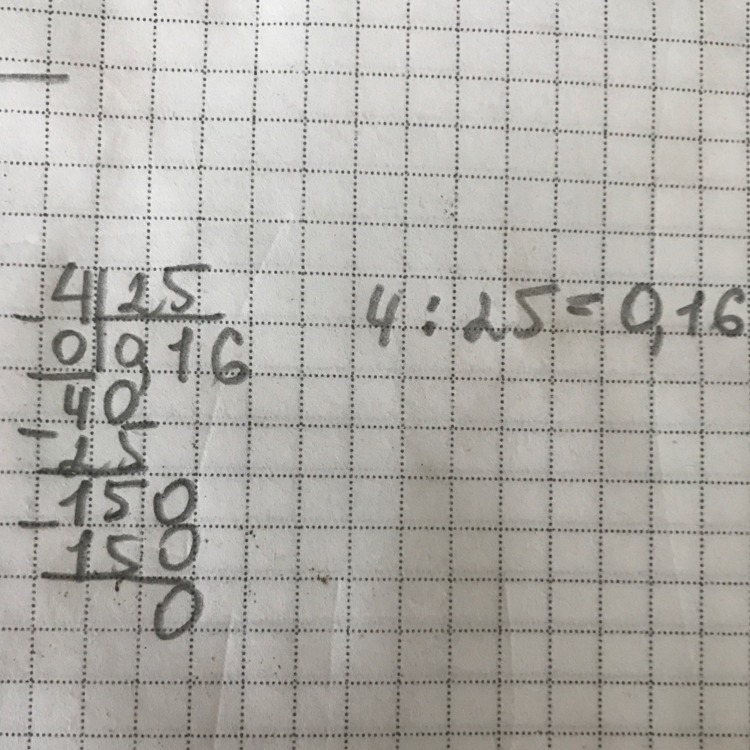 4 25
- 0 0,16
40
- 25
150
- 150
0
4 : 25 = 0,16